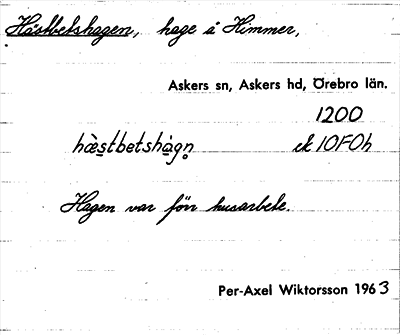 Hästbetshagen, hage å Himmer,
Askers sn, Askers hd, Örebro län.
1200
hæ̀stbetshàgn̥ ek 10F0h
Hagen var förr husarbete.
Per-Axel Wiktorsson 1963